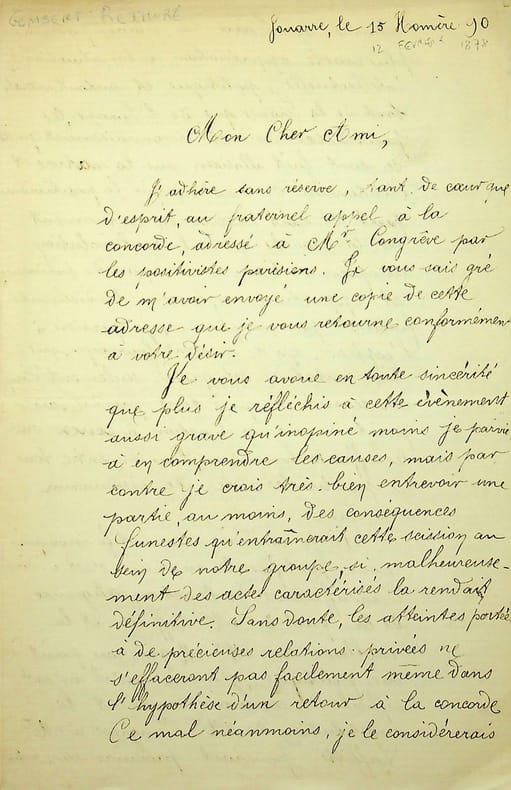 GEMBERT RETOURÉ
Jouarre, le 15 Homère 90
12 FEVRIER 1878
Mon Cher Ami,
J'adhère sans réserve, tant de cœur que
d'esprit, au fraternel appel à la
concorde, adressé à Mr. Congrève par
les positivistes parisiens. Je vous sais gré
de m'avoir envoyé une copie de cette
adresse que je vous retourne conformémen
à votre désir.
Je vous avoue en toute sincérité
que plus je réfléchis à cette évènement
aussi grave qu'inopiné moins je parvie
à en comprendre les causes, mais par
contre je crois très-bien entrevoir une
partie, au moins, des conséquences
funestes qu'entraînerait cette scission au
sein de notre groupe, si, malheureuse-
ment des actes caractérisés la rendait
définitive. Sans doute, les atteintes portée
à de précieuses relations privées ne
s'effaceront pas facilement même dans
l'hypothèse d'un retour à la concorde
Ce mal néanmoins, je le considérerais